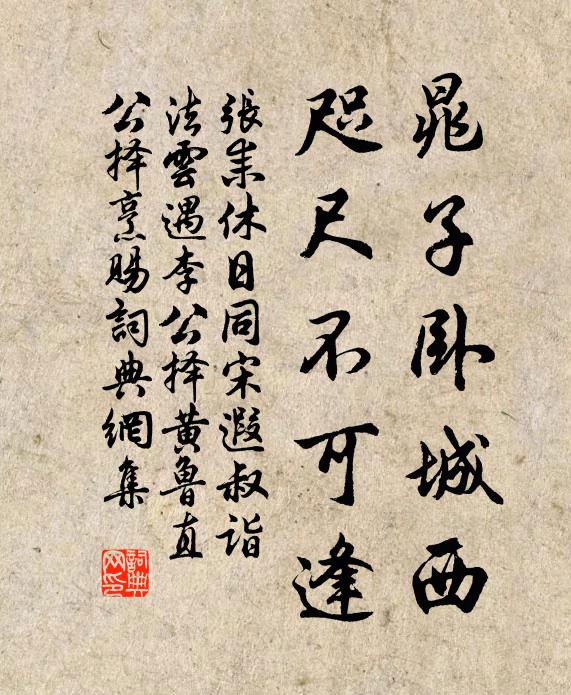 晁子卧城西
咫尺不可逢
張耒休日同宋遐叔詣
法雲遇李公择黄魯直
公择烹賜詞典網集
詞典
网印